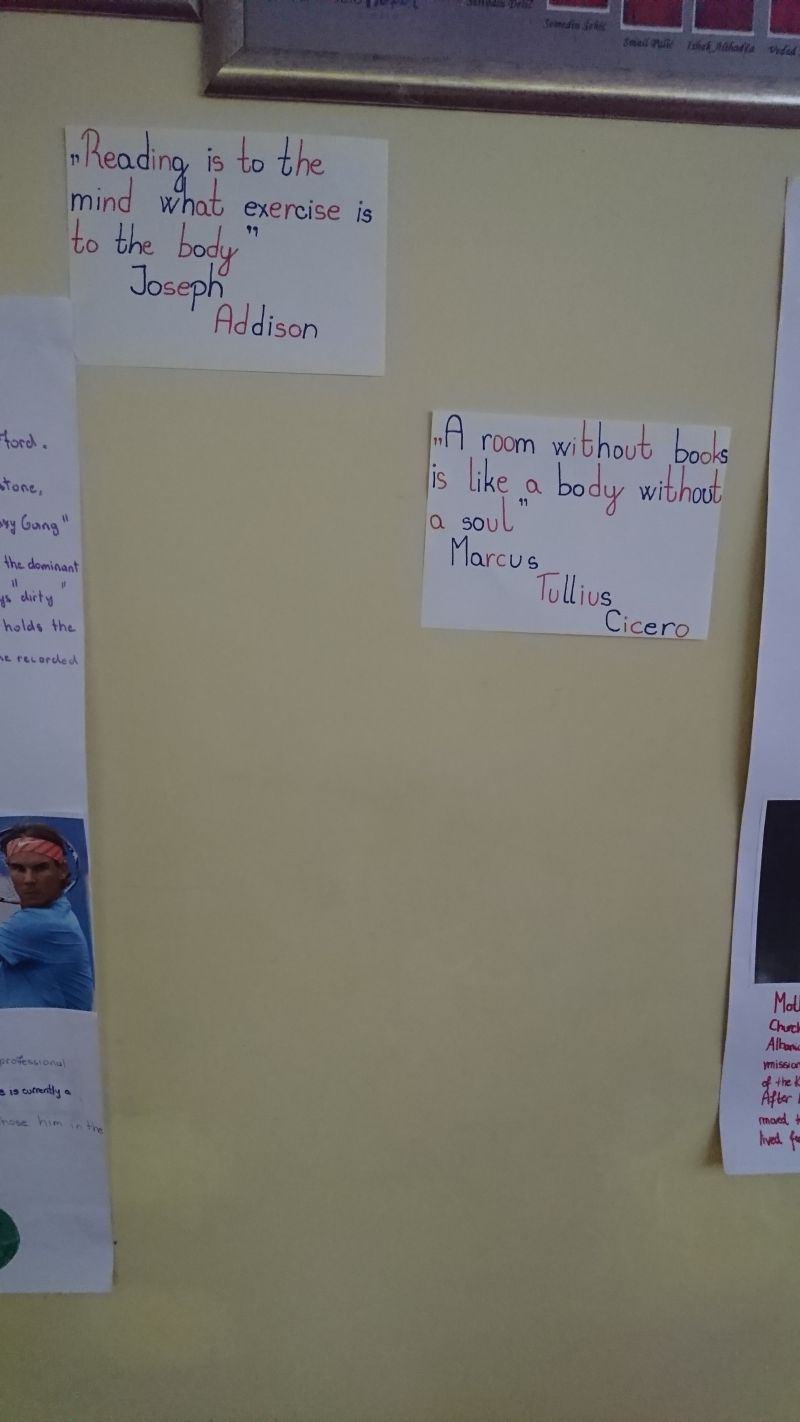 Semedin Šehić
Smail Palić
Vedad
„Reading is to the
mind what exercise is
to the body”
Joseph
Addison
„A room without books
is like a body without
a soul”
Marcus
Tullius
Cicero
ford.
tone,
Gang"
the dominant
dirty"
holds the
recorded
professional
is currently a
him in the
Church
mission
of the
After
moved
lived